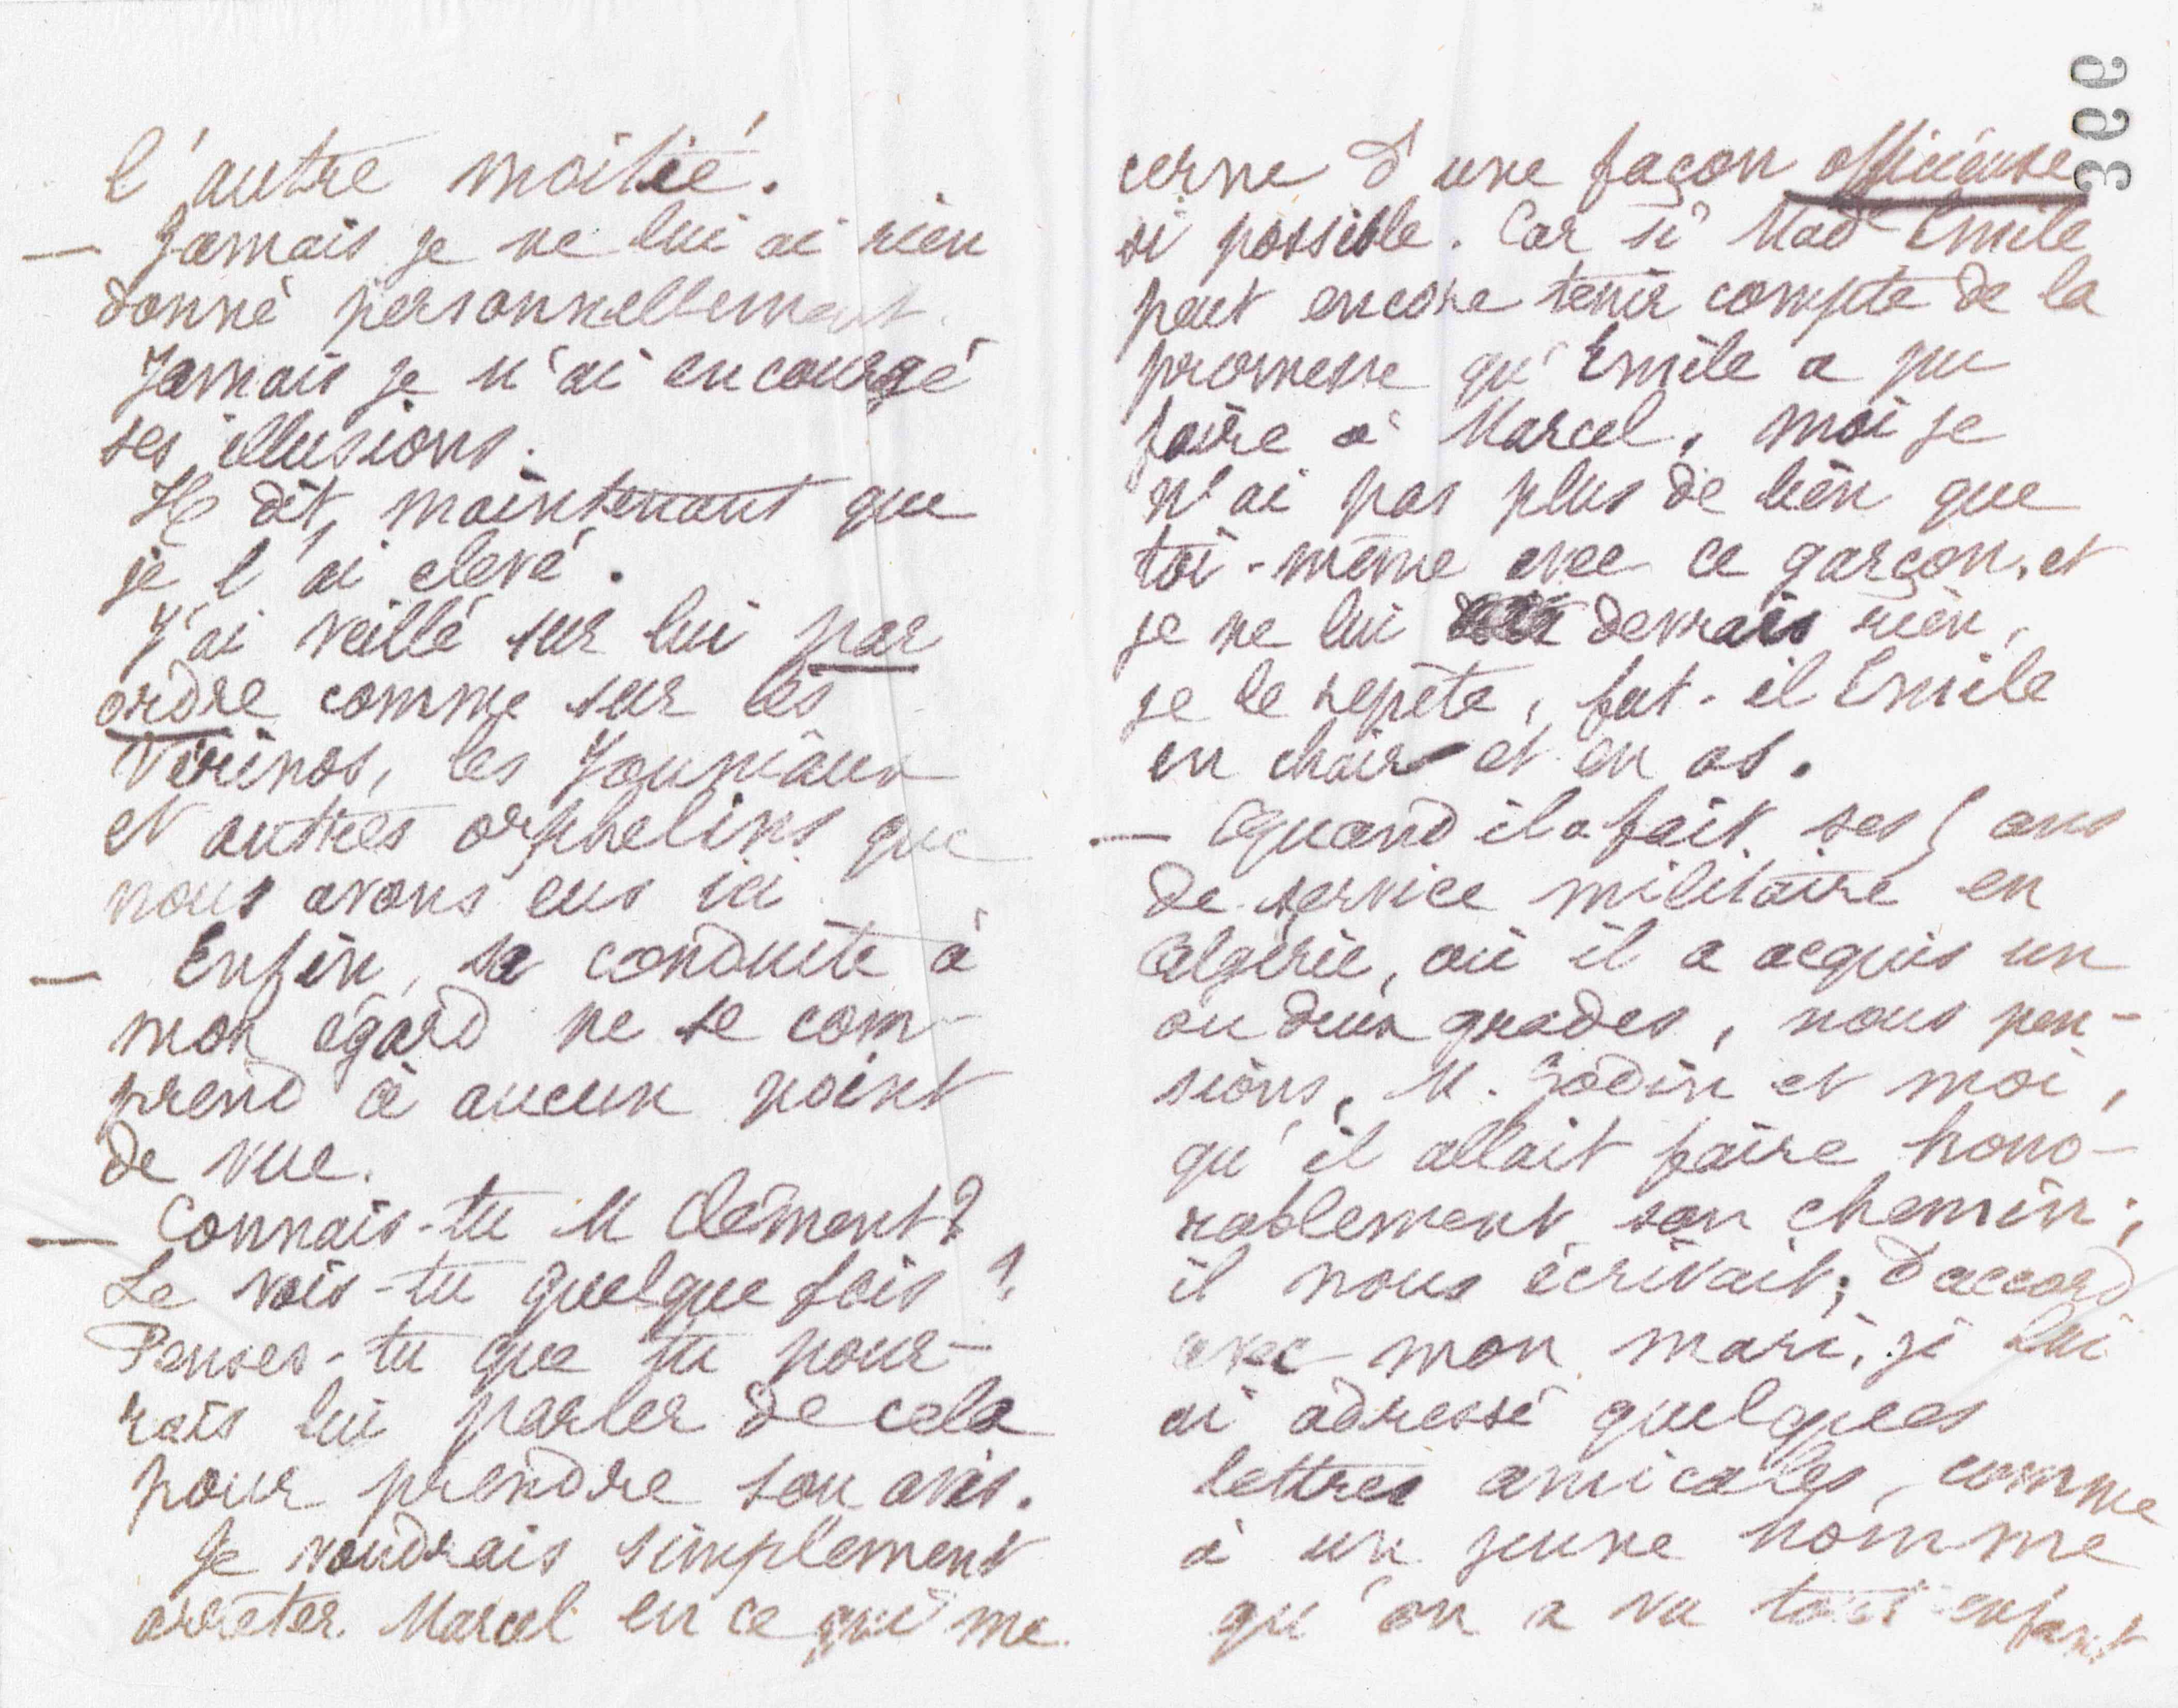 l'autre moitié.
— Jamais je ne lui ai rien
donné personnellement.
Jamais je n'ai encouragé
ses illusions.
Il dit, maintenant que
je l'ai elevé.
J'ai veillé sur lui par
ordre comme sur les
les Jouniaux
et autres orphelins que
nous avons eus ici.
— Enfin, sa conduite à
mon égard ne se com-
prend à aucun point
de vue.
— Connais-tu M Clément?
Le vois-tu quelque fois?
Penses-tu que tu pour-
rais lui parler de cela
pour prendre son avis.
Je voudrais simplement
arrêter Marcel en ce qui me
366
cerne d'une façon officieuse
si possible. Car si Made Emile
peut encore tenir compte de la
promesse qu'Emile a pu
faire à Marcel, moi je
n'ai pas plus de lien que
toi-même avec ce garçon, et
je ne lui devrais rien,
je le repète, fut-il Emile
en chair et en os.
— Quand il a fait ses 5 ans
de service militaire en
Algérie, où il a acquis un
ou deux grades, nous pen-
sions, M. Godin et moi,
qu'il allait faire hono-
rablement son chemin;
il nous écrivait; d'accord
avec mon mari, je lui
ai adressé quelques
lettres amicales, comme
à un jeune homme
qu'on a vu tout enfant